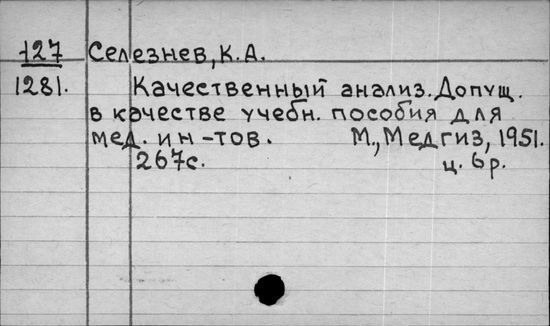 127 Селезнев, К.А.
1281. Качественный анализ. Допущ.
в качестве учебн. пособия для
мед. ин-тов. М., Медгиз, 1951.
267с. ц. 6р.